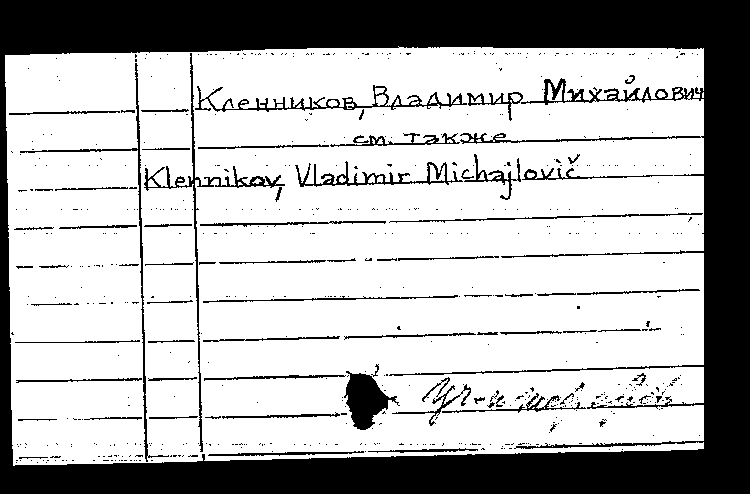 Кленников, Владимир Михайлович
см. также
Klennikov, Vladimir Michajlovič